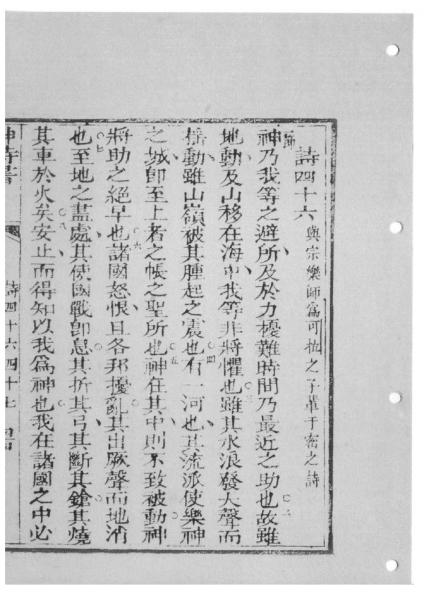 詩四十六 與宗樂師爲可拉之子輩于密之詩
一節 神乃我等之避所及於力擾難時間乃最近之助也○二故雖
地動及山移在海中我等非將懼也○三雖其水浪發大聲而
搖動雖山嶺被其腫起之震也○四有一河也其流派使樂神
之城卽至上者之帳之聖所也○五神在其中則不致被動神
將助之絕早也○六諸國怒恨且各邦擾亂其出厥聲而地消
○七
也至地之盡處其使國戰卽息其折其弓其斷其鎗其燒
其車於火矣安止而得知以我爲神也我在諸國之中必
神詩書 詩四十六四十七